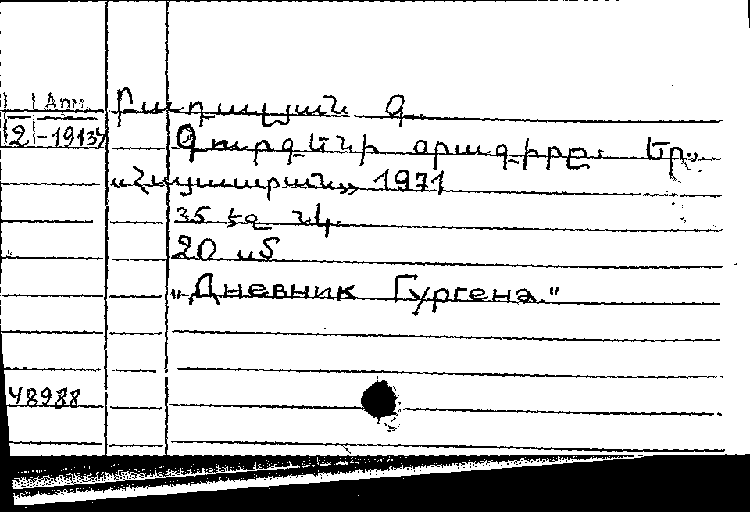 Арм.
2-19137
Բադալյան Գ.
Գուրգենի օրագիրը. Եր.,
«Հայաստան» 1971
35 էջ նկ.
20 սմ
„Дневник Гургена."
48988